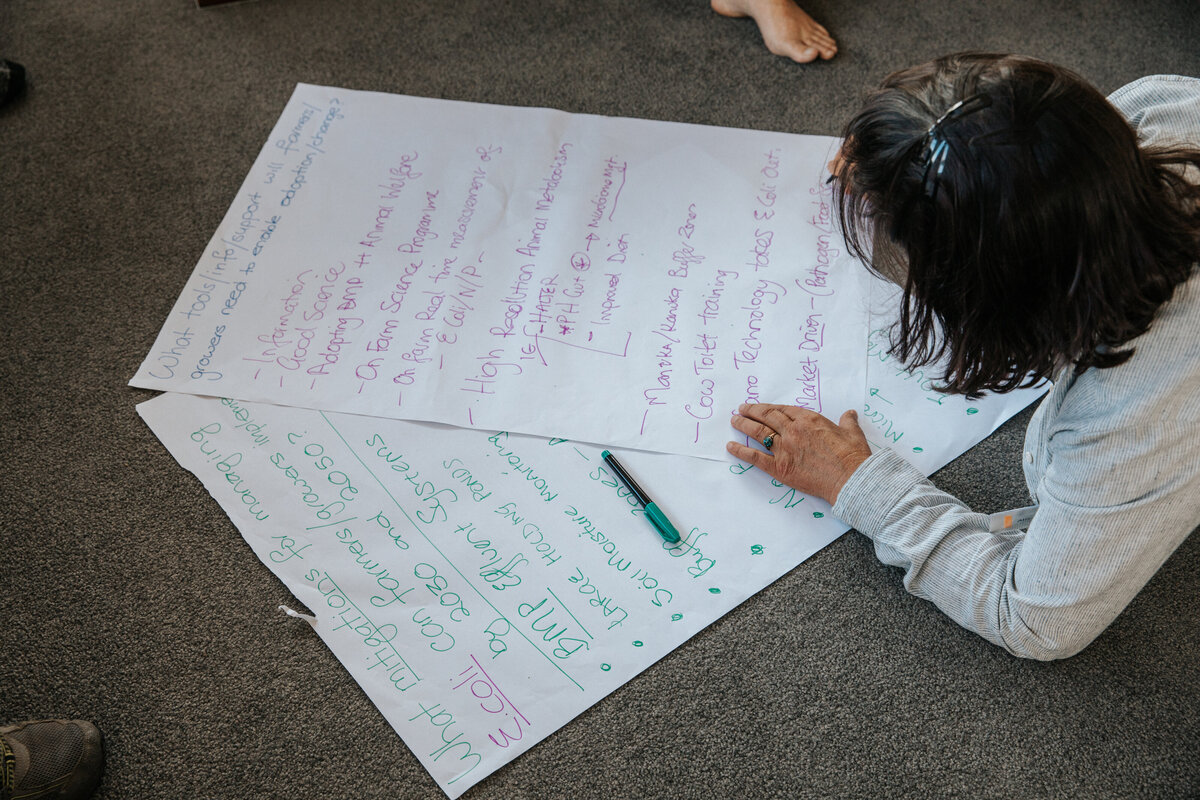 What tools/info/support will farmers/
growers need to enable adoption/change?
- Information
- Good Science
- Adopting BMP ++ Animal Welfare
- On Farm Science Programme
- On farm Real time measurement of
- E Coli/N/P -
- High Resolution Animal Metabolism
IE - HALTER
* PH Gut + → Nutritions Mgt.
- Improved Dwain
- Manuka/Kanuka Buffer Zones
- Cow Toilet training
Technology takes E Coli Out.
Market Driven - (Pathogen/
What mitigations for managing
E.coli can farmers/growers implement
by 2030 and 2050?
BMP Effluent Systems
LARGE HOLDING PONDS
Soil Moisture Monitoring
Buff Zones -
Micro